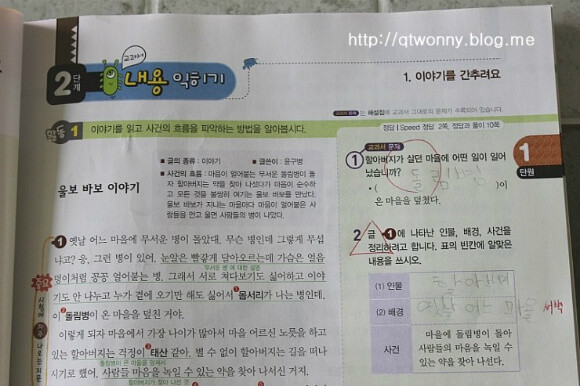 http://qtwonny.blog.me
2단계
교과서
내용 익히기
1. 이야기를 간추려요
교과서 문제 는 해설집에 교과서 그대로의 문제가 수록되어 있습니다.
활동 1 이야기를 읽고 사건의 흐름을 파악하는 방법을 알아봅시다.
정답 | Speed 정답 2쪽, 정답과 풀이 10쪽
울보 바보 이야기
■ 글의 종류 : 이야기 ■ 글쓴이 : 윤구병
■ 사건의 흐름 : 마음이 얼어붙는 무서운 돌림병이 돌
자 할아버지는 약을 찾아 나섰다가 마음이 순수하
고 모든 것을 불쌍히 여기는 울보 바보를 만났다.
울보 바보가 지나는 마을마다 마음이 얼어붙은 사
람들을 안고 울면 사람들의 병이 나았다.
1 옛날 어느 마을에 무서운 병이 돌았대. 무슨 병인데 그렇게 무섭
냐고? 응, 그런 병이 있어. 눈알은 빨갛게 달아오르는데 가슴은 얼음
무서운 병에 대한 설명
덩이처럼 꽁꽁 얼어붙는 병. 그래서 서로 쳐다보기도 싫어하고 이야
기도 안 나누고 누가 곁에 오기만 해도 싫어서 1 몸서리가 나는 병인데,
이 2 돌림병이 온 마을을 덮친 거야.
이렇게 되자 마을에서 가장 나이가 많아서 마을 어르신 노릇을 하고
있는 할아버지는 걱정이 3 태산 같아. 별 수 없이 할아버지는 길을 떠나
돌림병이 온 마을을 덮쳐서
시기로 했어. 사람들 마음을 녹일 수 있는 약을 찾아 나선 거지.
할아버지가 찾아 나선 것
중요
1단원
교과서 문제
1 할아버지가 살던 마을에 어떤 일이 일어
났습니까?
• ( 돌림병 )이
온 마을을 덮쳤다.
2 글 1 에 나타난 인물, 배경, 사건을
정리하려고 합니다. 표의 빈칸에 알맞은
내용을 쓰시오.
(1) 인물 할아버지
(2) 배경 옛날 어느 마을
사건
마을에 돌림병이 돌아
사람들의 마음을 녹일 수
있는 약을 찾아 나선다.